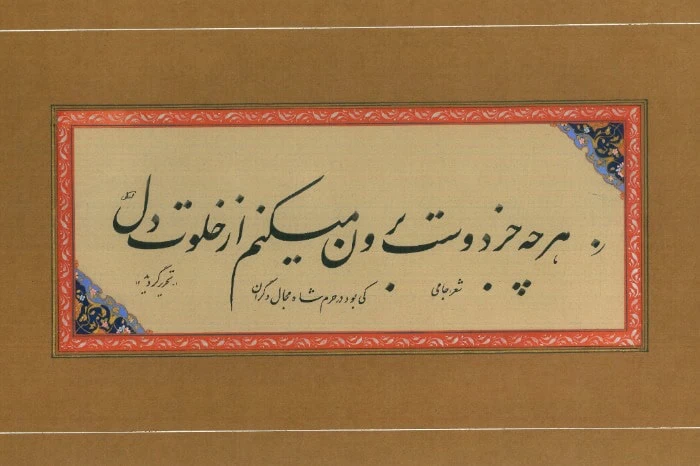 هرچه جز دوست برون میکنم از خلوت دل
شعر جامی
کی بود در حرم شاه مجال دگران
تحریر گردید